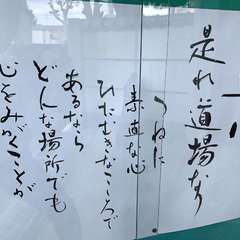 是れ道場なり
つねに
素直な心
ひたむきなこころで
あるなら
どんな場所でも
心をみがくことが